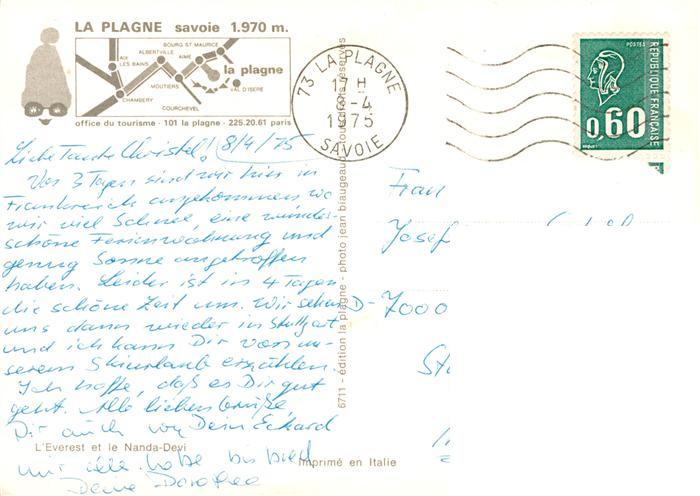 LA PLAGNE savoie 1.970 m.
BOURG ST. MAURICE
ALBERTVILLE
AIX LES BAINS
AIME
la plagne
MOUTIERS
VAL D'ISERE
CHAMBERY
COURCHEVEL
office du tourisme - 101 la plagne - 225.20.61 paris
73 LA PLAGNE
17 H
8-4
1975
SAVOIE
POSTES
REPUBLIQUE FRANÇAISE
0,60
Liebe Tante Christel! 8/4/75
Vor 3 Tagen sind wir hier in
Frankreich angekommen, wo
wir viel Schnee, eine wunder-
schöne Ferienwohnung und
genug Sonne angetroffen
haben. Leider ist in 4 Tagen
die schöne Zeit um. Wir sehen
uns dann wieder in Stuttgart
und ich kann Dir von un-
serem Skiurlaub erzählen.
Ich hoffe, daß es Dir gut
geht. Alle lieben Grüße,
Dir auch von Dein Eckard
L'Everest et le Nanda-Devi
bis bald
Deine Dorothea
6711 - édition la plagne - photo jean biaugeaud - tous droits réservés
Imprimé en Italie
Frau
Josef
D-7000